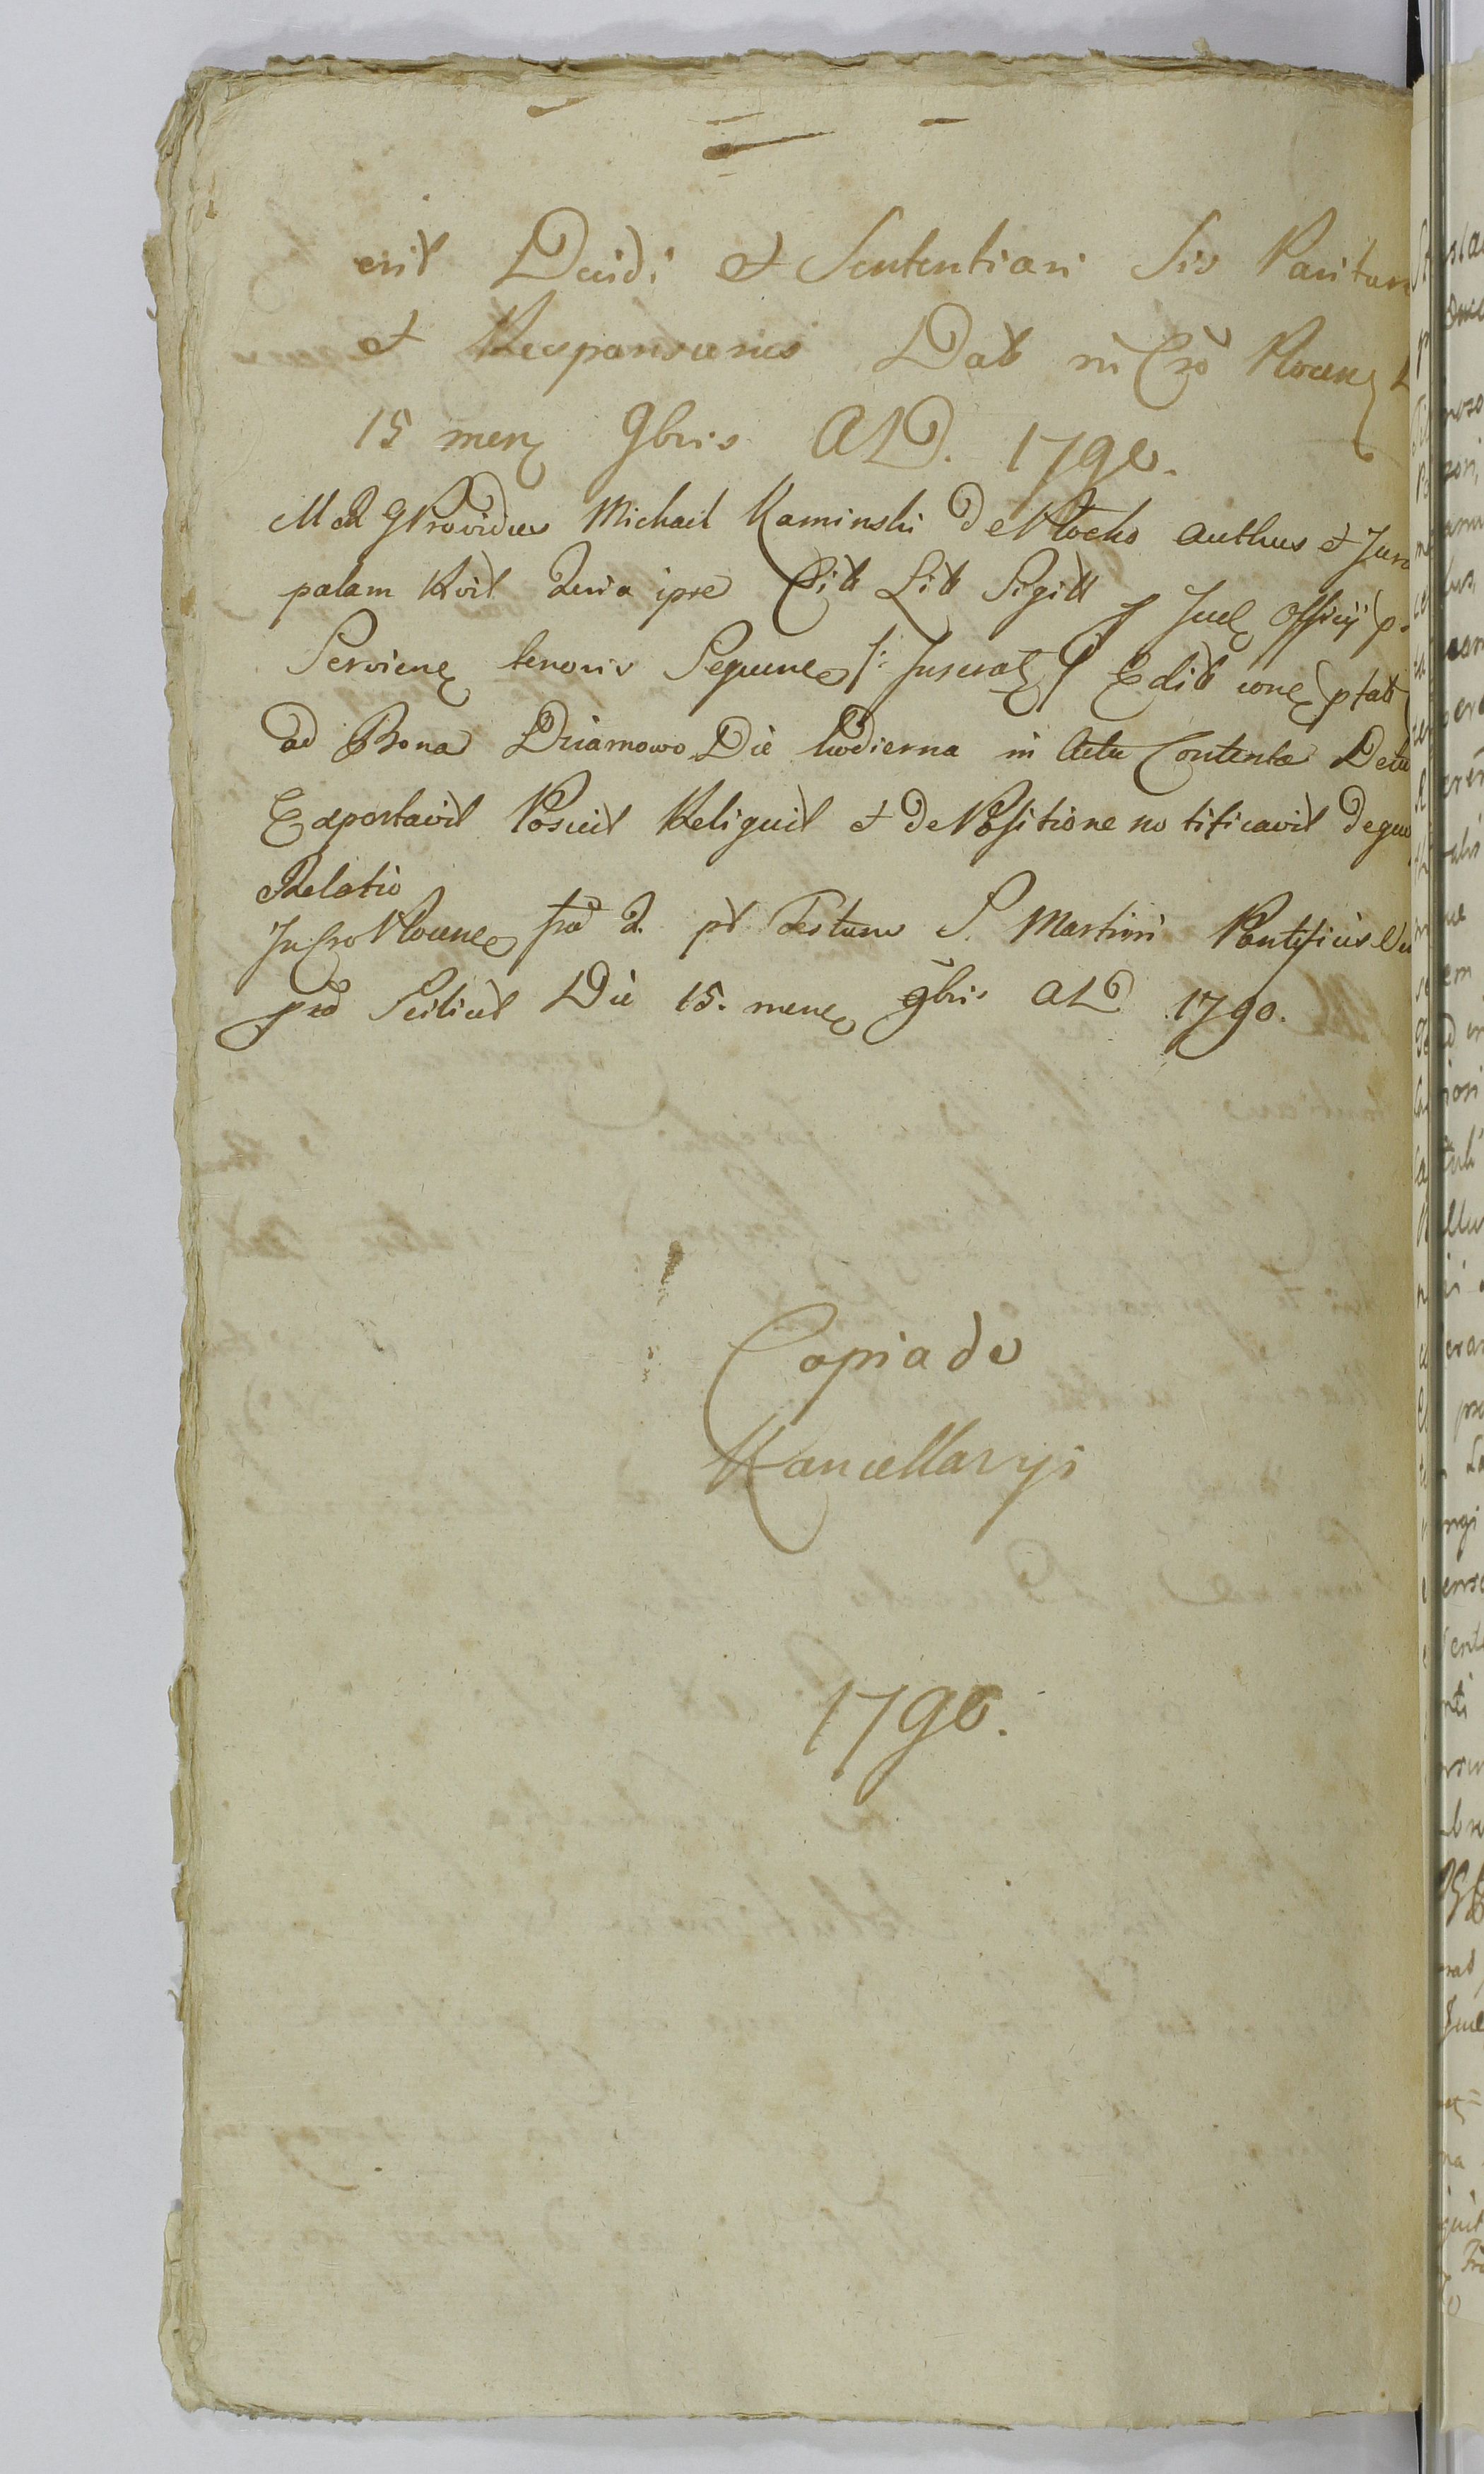 erit Decidi et Sententiari Sis Paritur
et Responsurus Dat in Cro Plocen
15 men 9bris AD. 1790.
Providus Michael Kaminski de Plocko authus et Jur
palam Rcit quia ipse Cit Lit Sigill Officij
Servien tenoris Sequen /: Inserat /: Edit
ad Bona Dziarnowo Die hodierna in Actu Contenta
Exportavit Posuit Reliquit et de Positione notificavit de quo
Relatio
In Cro Plocen fra 2. pt Festum S. Martini Pontificis
prd Scilicet Die 15. men 9bris AD 1790.
Copia de
Kancellaryi
1790.